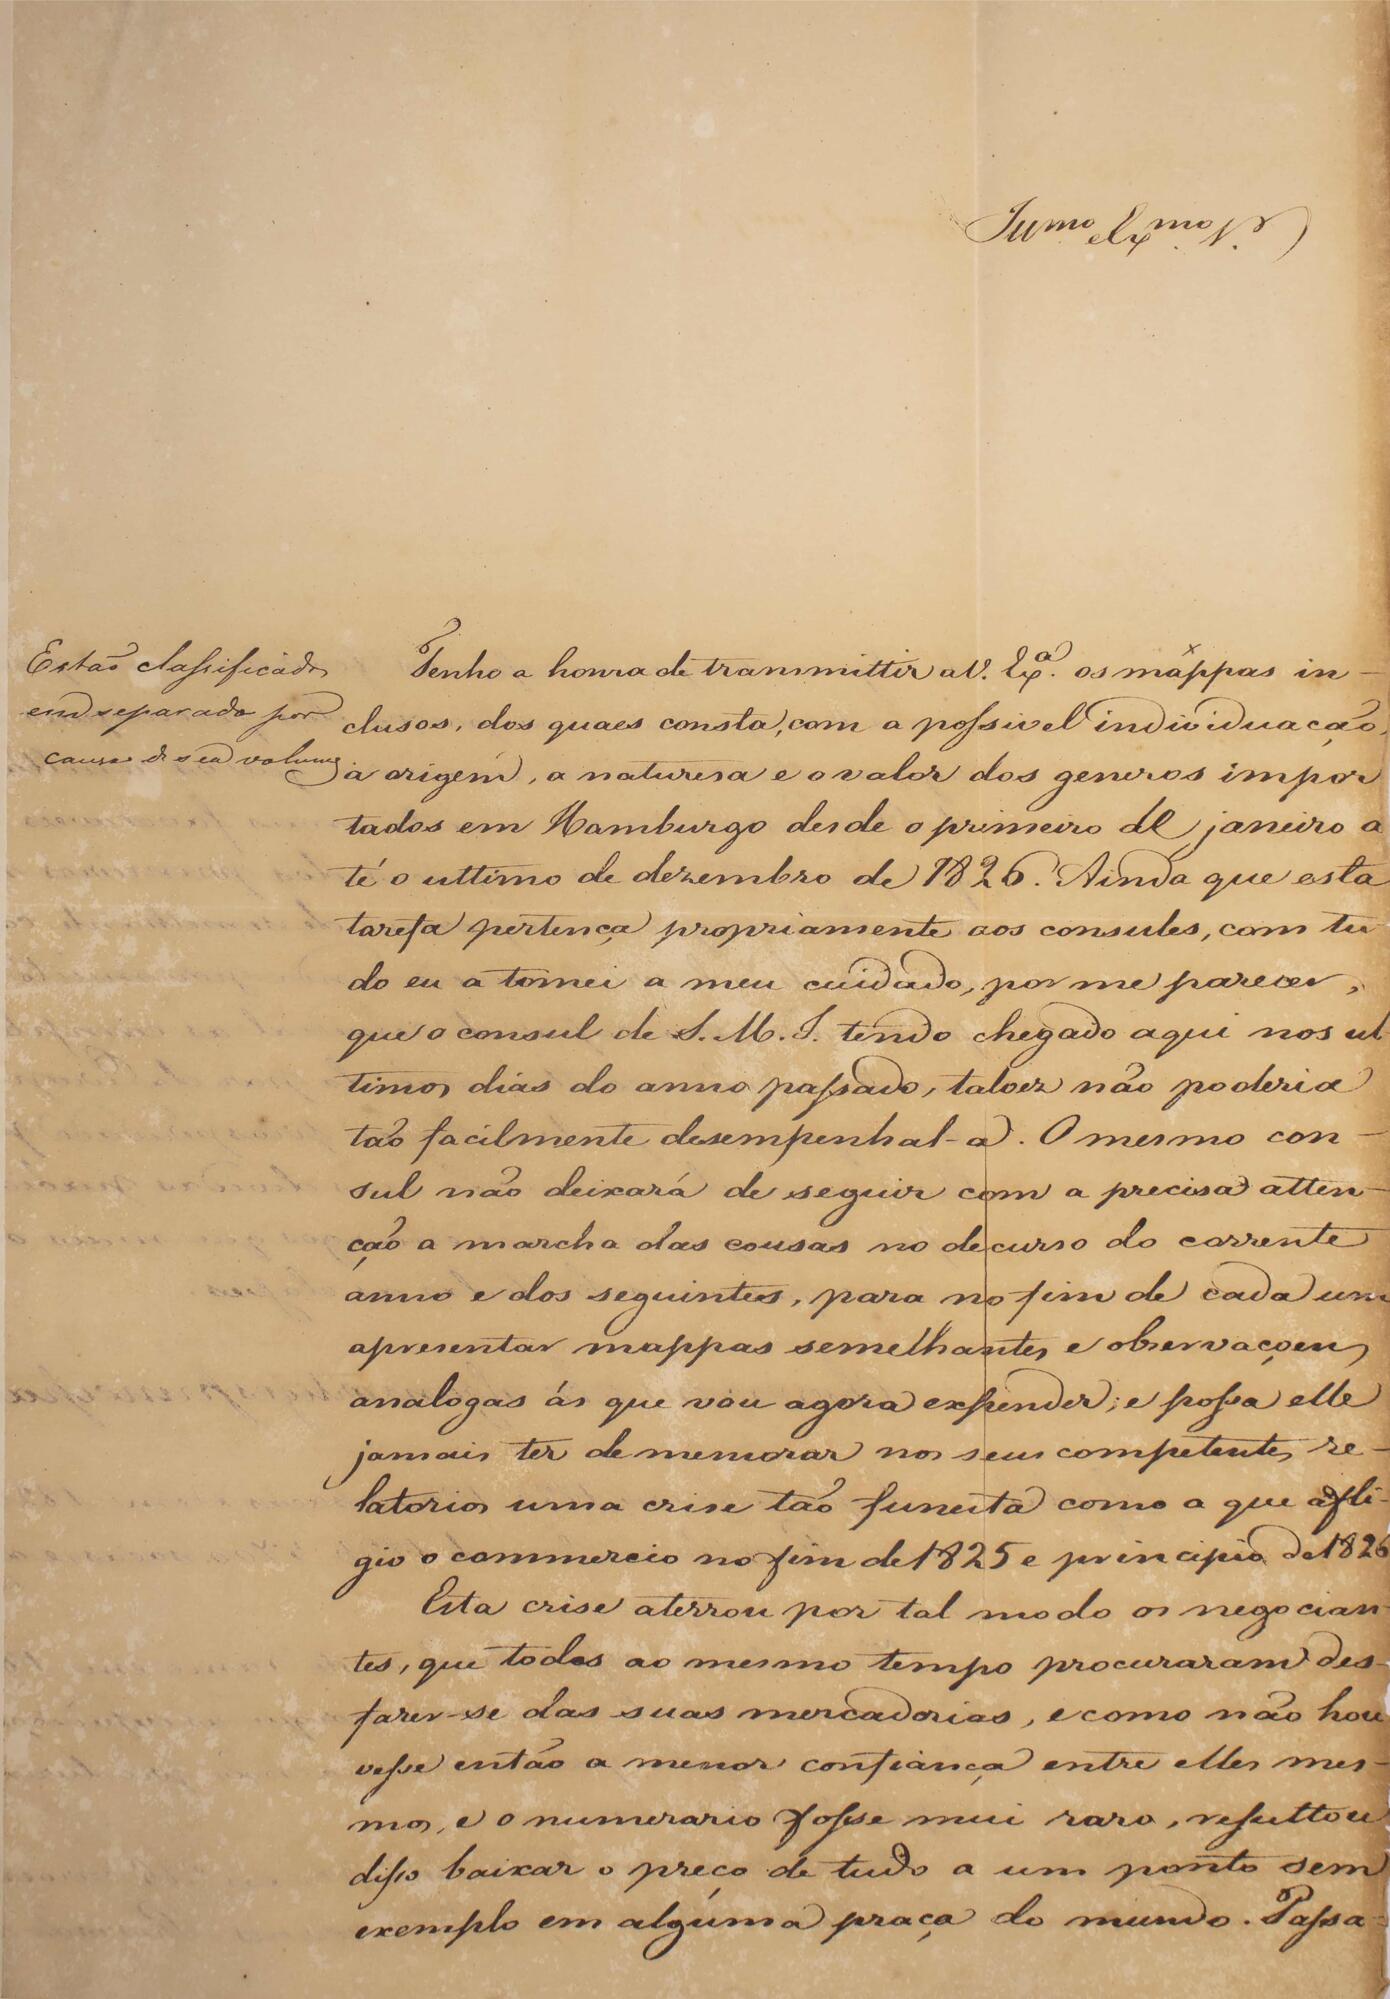 Illmo Exmo Sr.
Estão classificados
em separado por
causa de seu volume
Tenho a honra de transmittir a V. Exª. os mappas in-
clusos, dos quaes consta, com a possivel individuação,
a origem, a naturesa e o valor dos generos impor
tados em Hamburgo desde o primeiro de janeiro a
té o ultimo de dezembro de 1826. Ainda que esta
tarefa pertença propriamente aos consules, com tu
do eu a tomei a meu cuidado, por me parecer,
que o consul de S. M. I. tendo chegado aqui nos ul
timos dias do anno passado, talvez não poderia
tão facilmente desempenhal-a. O mesmo con-
sul não deixará de seguir com a precisa atten-
ção a marcha das cousas no decurso do corrente
anno e dos seguintes, para no fim de cada um
apresentar mappas semelhantes e observações
analogas ás que vou agora expender; e possa elle
jamais ter de memorar nos seus competentes re-
latorios uma crise tão funesta como a que affli-
gio o commercio no fim de 1825 e principio de 1826
Esta crise aterrou por tal modo os negocian-
tes, que todos ao mesmo tempo procuraram des-
fazer-se das suas mercadorias, e como não hou
vesse então a menor confiança entre elles mes-
mos, e o numerario fosse mui raro, resultou
disso baixar o preço de tudo a um ponto sem
exemplo em alguma praça do mundo. Passa-